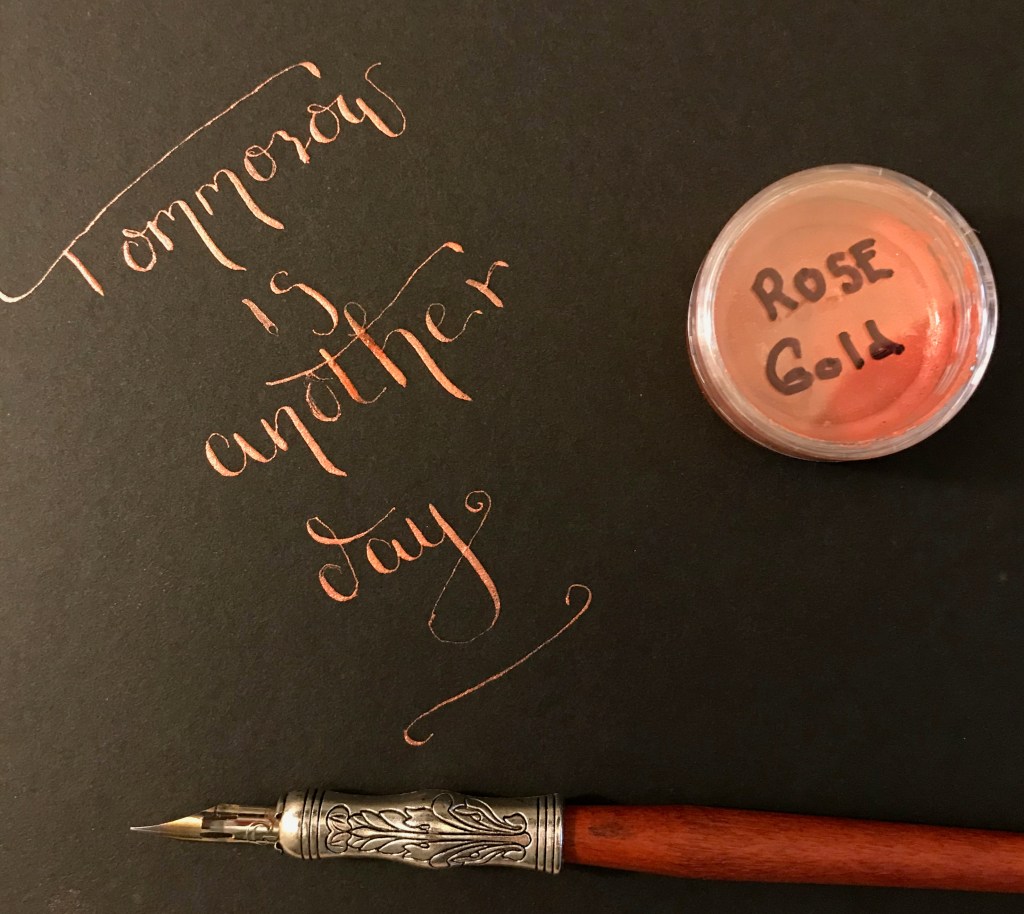 Tommorow
is
another
day
ROSE
Gold